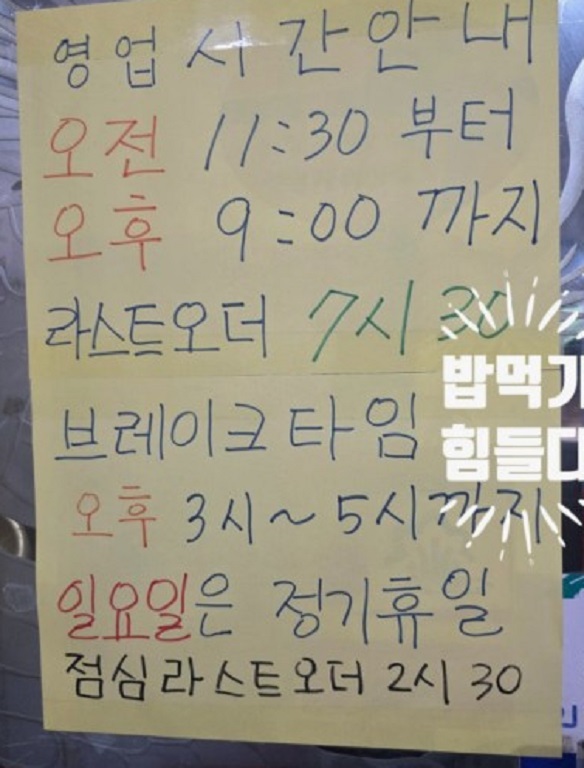 영업시간안내
오전 11:30 부터
오후 9:00 까지
라스트오더 7시 30
밥먹기
힘들다
브레이크타임
오후 3시~5시까지
일요일은 정기휴일
점심라스트오더 2시 30